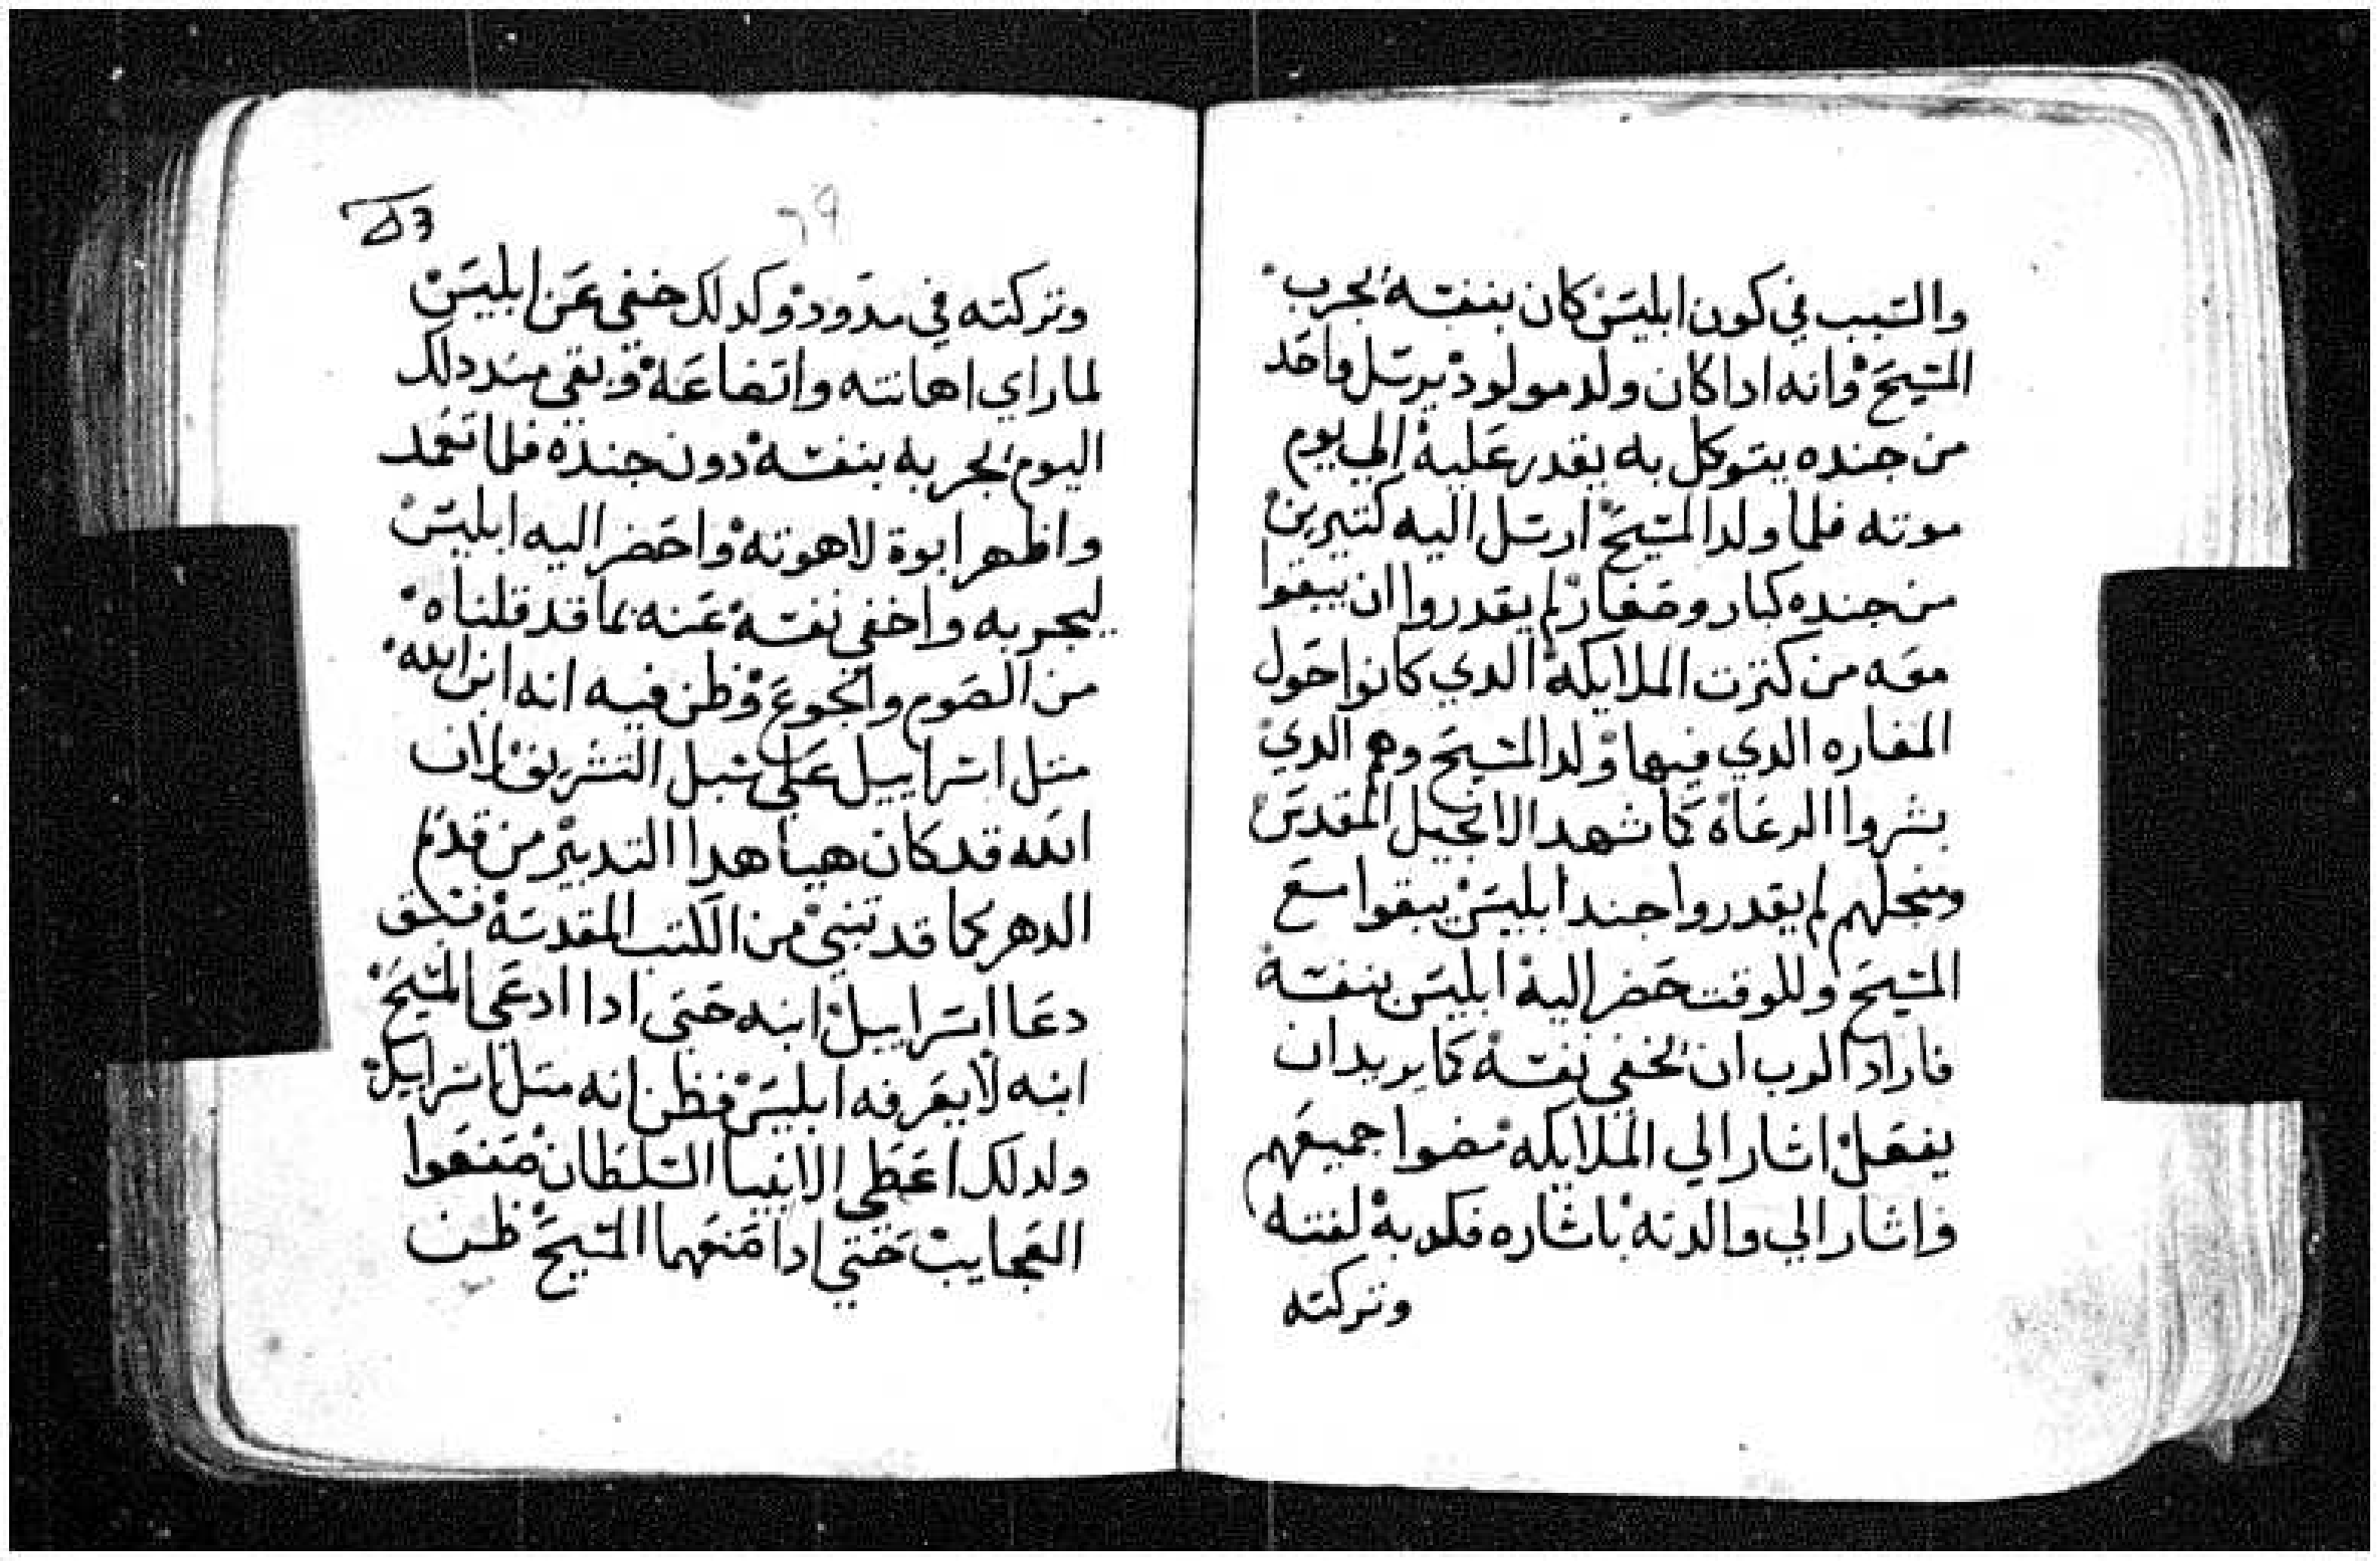 والسبب في كون ابليس كان بنفسه يجرب
المسيح وانه ادا كان ولد مولود يرسل واحد
من جنده يتوكل به يقدر عليه الي يوم
موته فلما ولد المسيح ارسل اليه كتيرين
من جنده كبار وصغار لم يقدروا ان يبقوا
معه من كترت الملايكه الدي كانوا حول
المغاره الدي فيها ولد المسيح وهم الدي
بشروا الرعاه كما شهد الانجيل المقدس
ومنجلهم لم يقدروا جند ابليس يبقوا مع
المسيح وللوقت حضر اليه ابليس بنفسه
فاراد الرب ان يخفي نفسه كما يريد ان
يفعل اشار الي الملايكه مضوا جميعهم
واشار الي والدته باشاره فكدبه لفته
وتركته
وتركته في مدود وكدلك خفي عن ابليس
لما راي اهانته واتضاعه وبقي مند دلك
اليوم يجربه بنفسه دون جنده فلما تعمد
واظهر ابوة لاهوته واحضر اليه ابليس
ليجربه واخفي نفسه عنه بما قد قلناه
من الصوم والجوع وظن فيه انه ابن الله
متل اسراييل علي سبل التشريف لان
الله قد كان هيا هدا التدبير من قدم
الدهر كما قد تبني من الكتب المقدسه
دعا اسراييل ابنه حتى ادا ادعي المسيح
ابنه لا يعرفه ابليس فظن انه متل اسراييل
ولدلك اعطي الانبيا السلطان صنعوا
العجايب حتي ادا صنعهما المسيح ظن